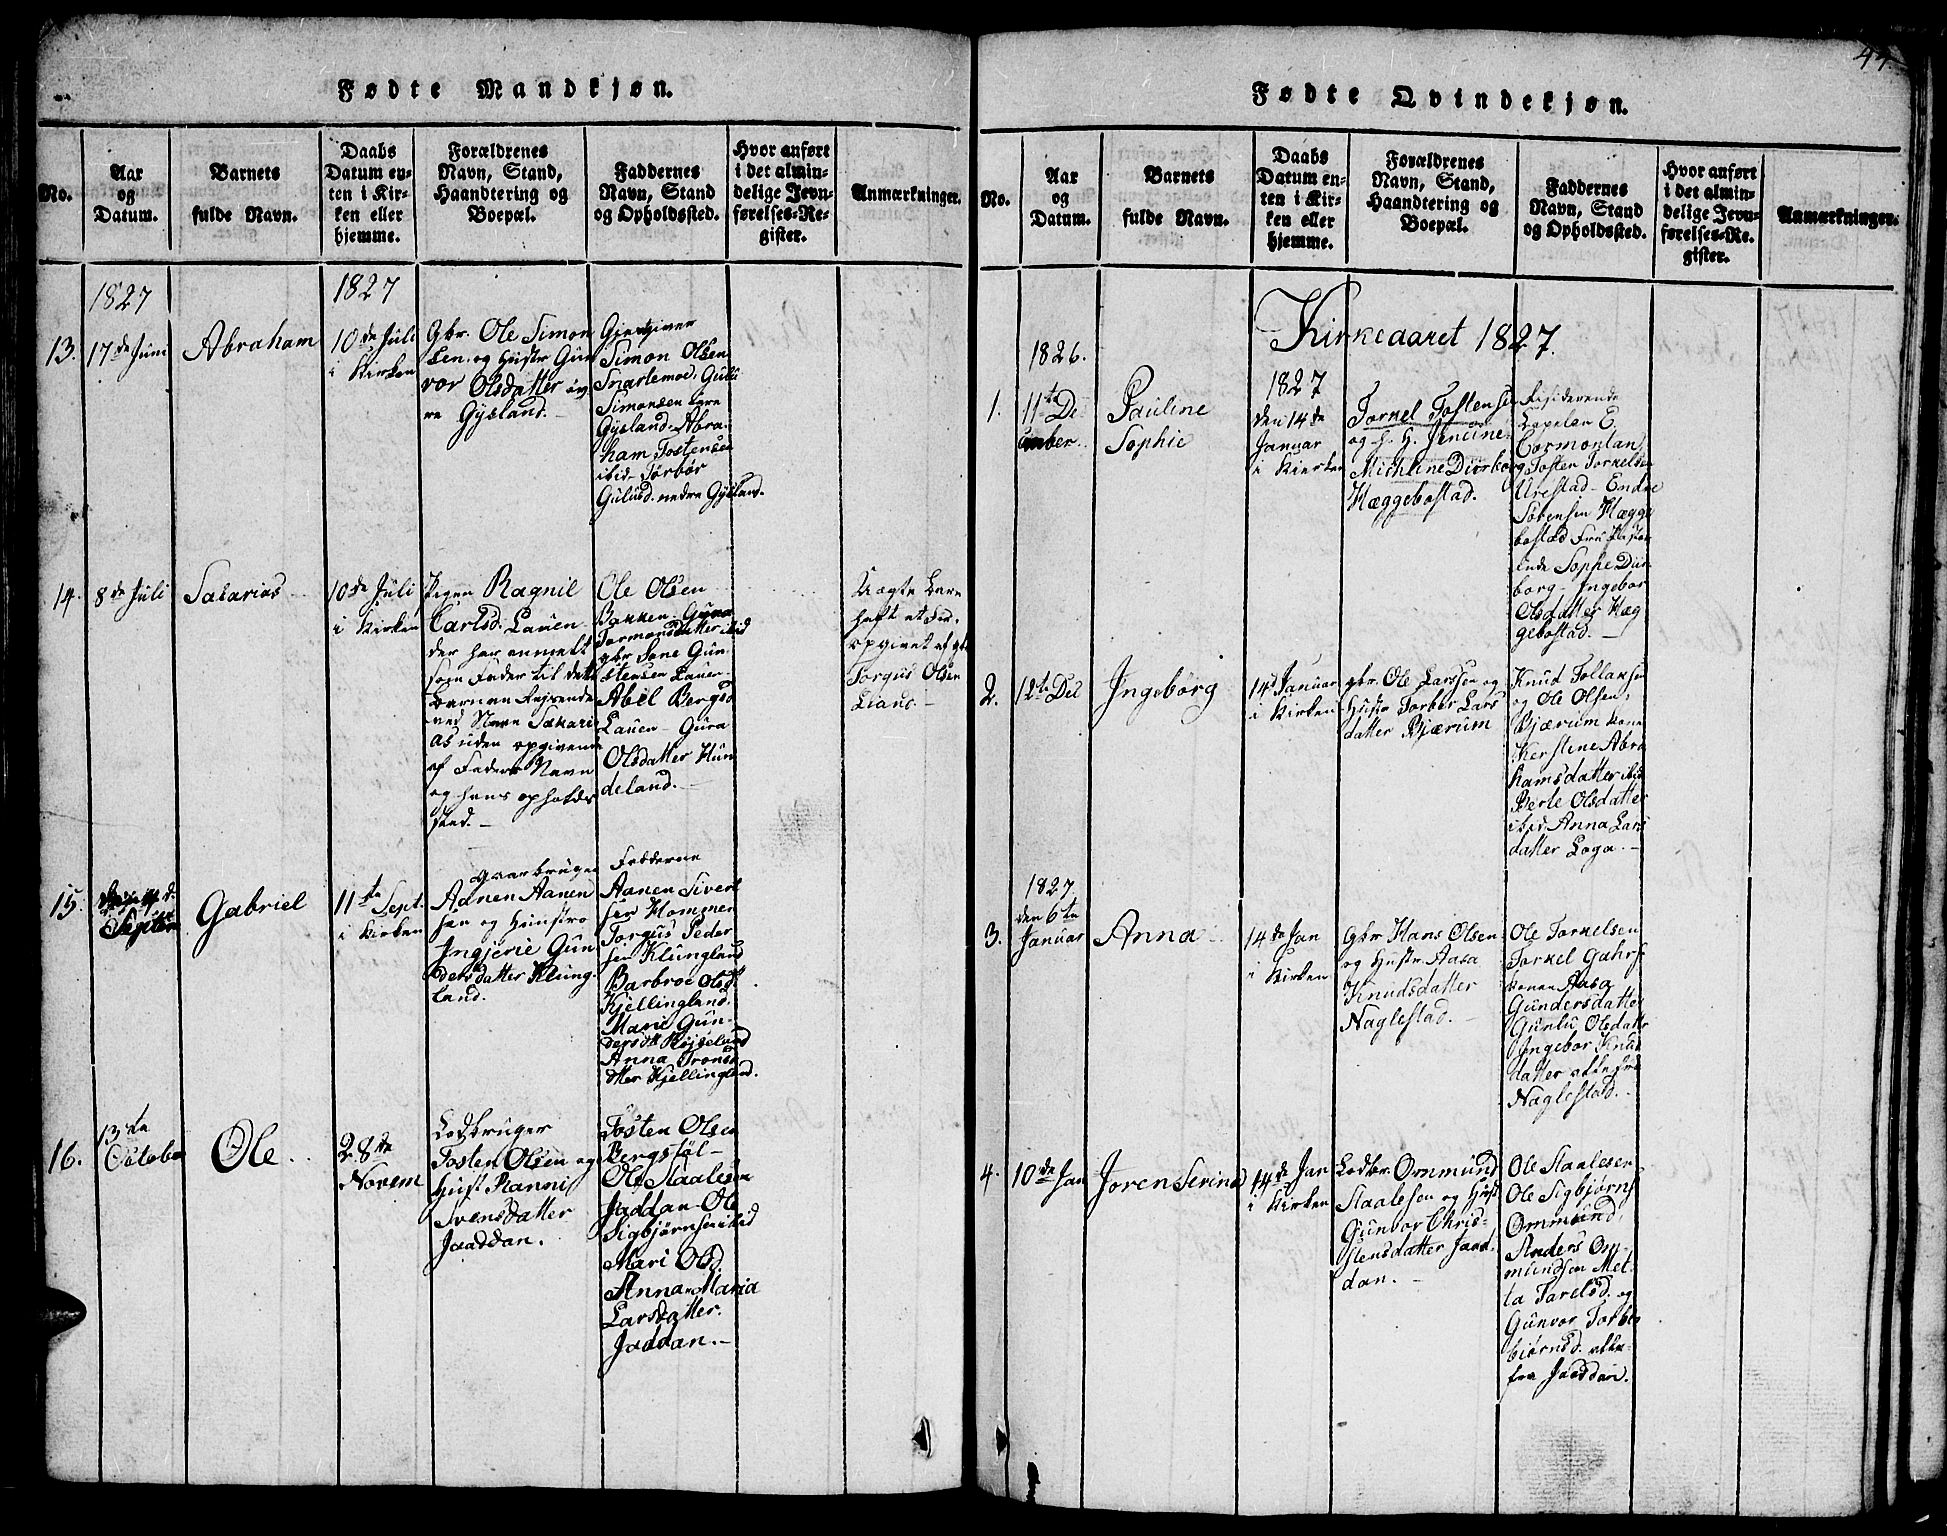 44
Fødte Mandkjøn.
No.
Aar
og
Datum.
Barnets
fulde Navn.
Daabs
Datum en-
ten i Kir-
ken eller
hjemme.
Forældrenes
Navn, Stand,
Haandtering og
Boepæl.
Faddernes
Navn, Stand
og Opholdssted.
Hvor anført
i det almin-
delige Jevn-
førelses-Re-
gister.
Anmærkninger.
1827
1827
13.
17de Juni
Abraham
10de Juli
i Kirken
Gbr. Ole Simon
sen og Hustr Gun
vor Olsdatter øv
re Gysland.
Gjestgiver
Simon Olsen
Snartemoe, Gulu
Simonsen øvre
Gysland-Abra-
ham Tostensen
ibid- Torbør
Gulusd. nedre Gysland.
14.
8de Juli
Sakarias
10de Juli
i Kirken
Pigen Ragnil
Carlsd. Lauen
der har anmelt
som Fader til dette
Barn en Reisende
ved Navn Sakari
as uden opgivende
af Faders Navn
og hans opholds
sted.-
Ole Olsen
Bakken- Guna
Tormondsdatter ibid
gbr Sone Gun
stensen Lauen-
Abel Bergsd
Lauen- Gura
Olsdatter Hun
deland.-
Uægte
opgivet af
Torgus Olsen
Liand.-
15.
Septem
Gabriel
11te Sept.
i Kirken
Gaarbruger
Aanen Aanen
sen og Hunstro
Ingjerie Gun
dersdatter Klung
land.
Fadderne
Aanen Sivert
sen Hommen
Torgus Peder
sen Klungland
Barbroe Olsd
Kjellingland.
Marie Gun-
dersdt Røjseland
Anna Tronsd
dtter Kjellingland.
16.
13de
October
Ole
28de
Novem
Lodbruger
Tosten Olsen og
Hust Ranni
Svensdatter
Jaaddan.
Tosten Olsen
Bergsføl-
Ole Staalesen
Jaddan-Ole
Sigbjørnsen ibid
Mari Olsd.
Anna Maria
Larsdatter.
Jaddan.-
Fødte Qvindekjøn.
No.
Aar
og
Datum.
Barnets
fulde Navn.
Daabs
Datum en-
ten i Kir-
ken eller
hjemme.
Forældrenes
Navn, Stand,
Haandtering og
Boepæl.
Faddernes
Navn, Stand
og Opholdssted.
Hvor anført
i det almin-
delige Jevn-
førelses-Re-
gister.
Anmærkninger.
Kirkeaaret 1827.
1826.
1827
1.
11te De
cember.
Pauline
Sophie
den 14de
Januar
i Kierken
Torkel Tostensen
og h. H. Jensine
Michline Diirborg
Hæggebostad.
Residerende
Capelan E.
Cormontan,
Tosten Torkelsen
Urestad- Endre
Sørensen Hægge
bostad
Sophe Diir
borg- Ingebor
Olsdatter Hæg
gebostad.-
2.
12te Dec
Ingebørg
14de Januar
i Kirken
gbr. Ole Larssen og
Hustr Torbør Lars
datter Bjærum
Knud Tollaksen
og Ole Olsen,
Bjærum kone
Kerstine Abra
hamsdatter ibid
Berte Olsdatter
ibid Anna Lars
datter Loga.-
1827.
3.
den 6te
Januar
Anna-
14de Jan
i Kirken
Gbr Hans Olsen
og Hustr Aasa
Knudsdatter
Naglestad.-
Ole Torkelsen
Torkel Gahrs
konen Aasa
Gundersdatter
Gunlu Olsdatter
Ingebor Knuds
datter alle fra
Naglestad.-
4.
10de Jan
Joren Serina
14de Jan
i Kirken
Lodbr. Ommund
Staalesen og Hust
Gunvor Chris-
stensdatter Jaad-
dan.-
Ole Staalesen
Ole Sigbjørns
Ommund,
Anders Om-
mundsen Met-
ta Tarelsd. og
Gunvor Torbe
biørnsd. alle
fra Jaaddan.